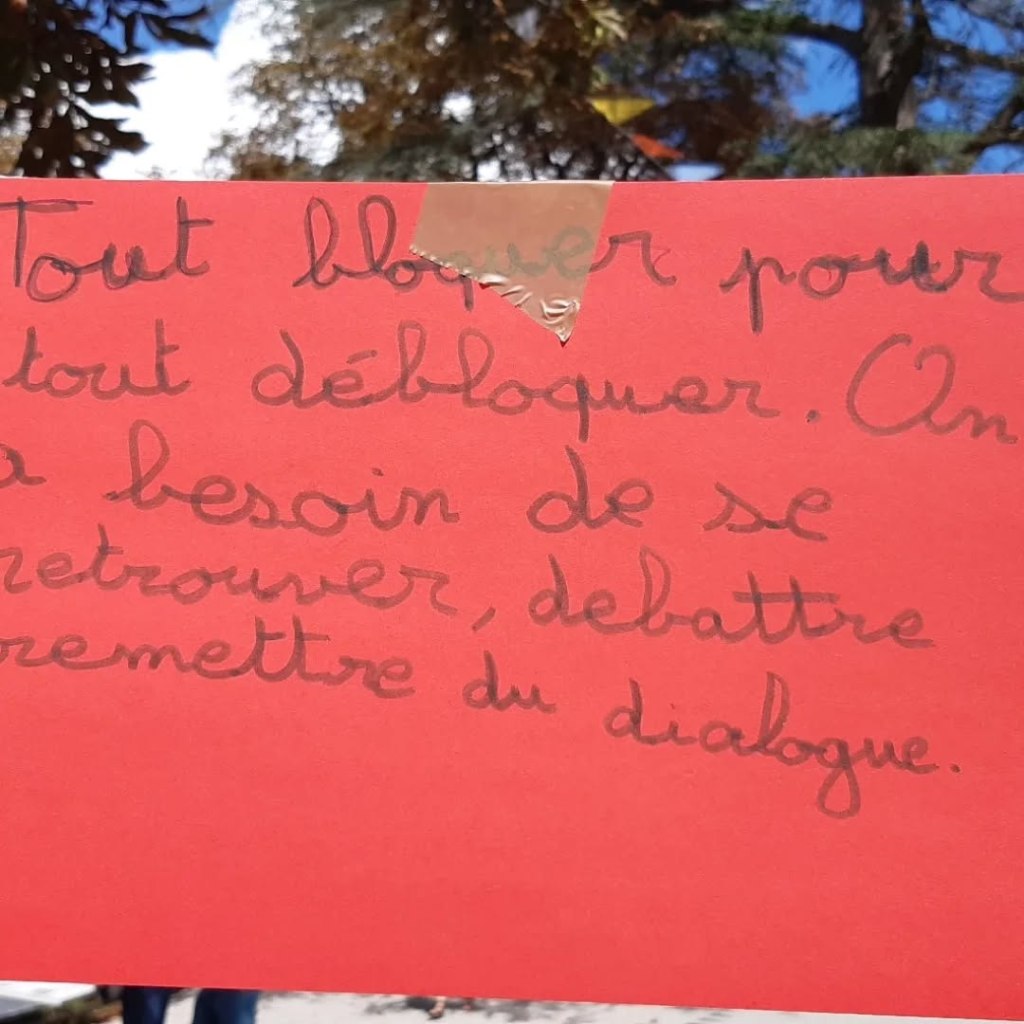 Tout bloquer pour
tout débloquer. On
a besoin de se
retrouver, debattre
remettre du dialogue.